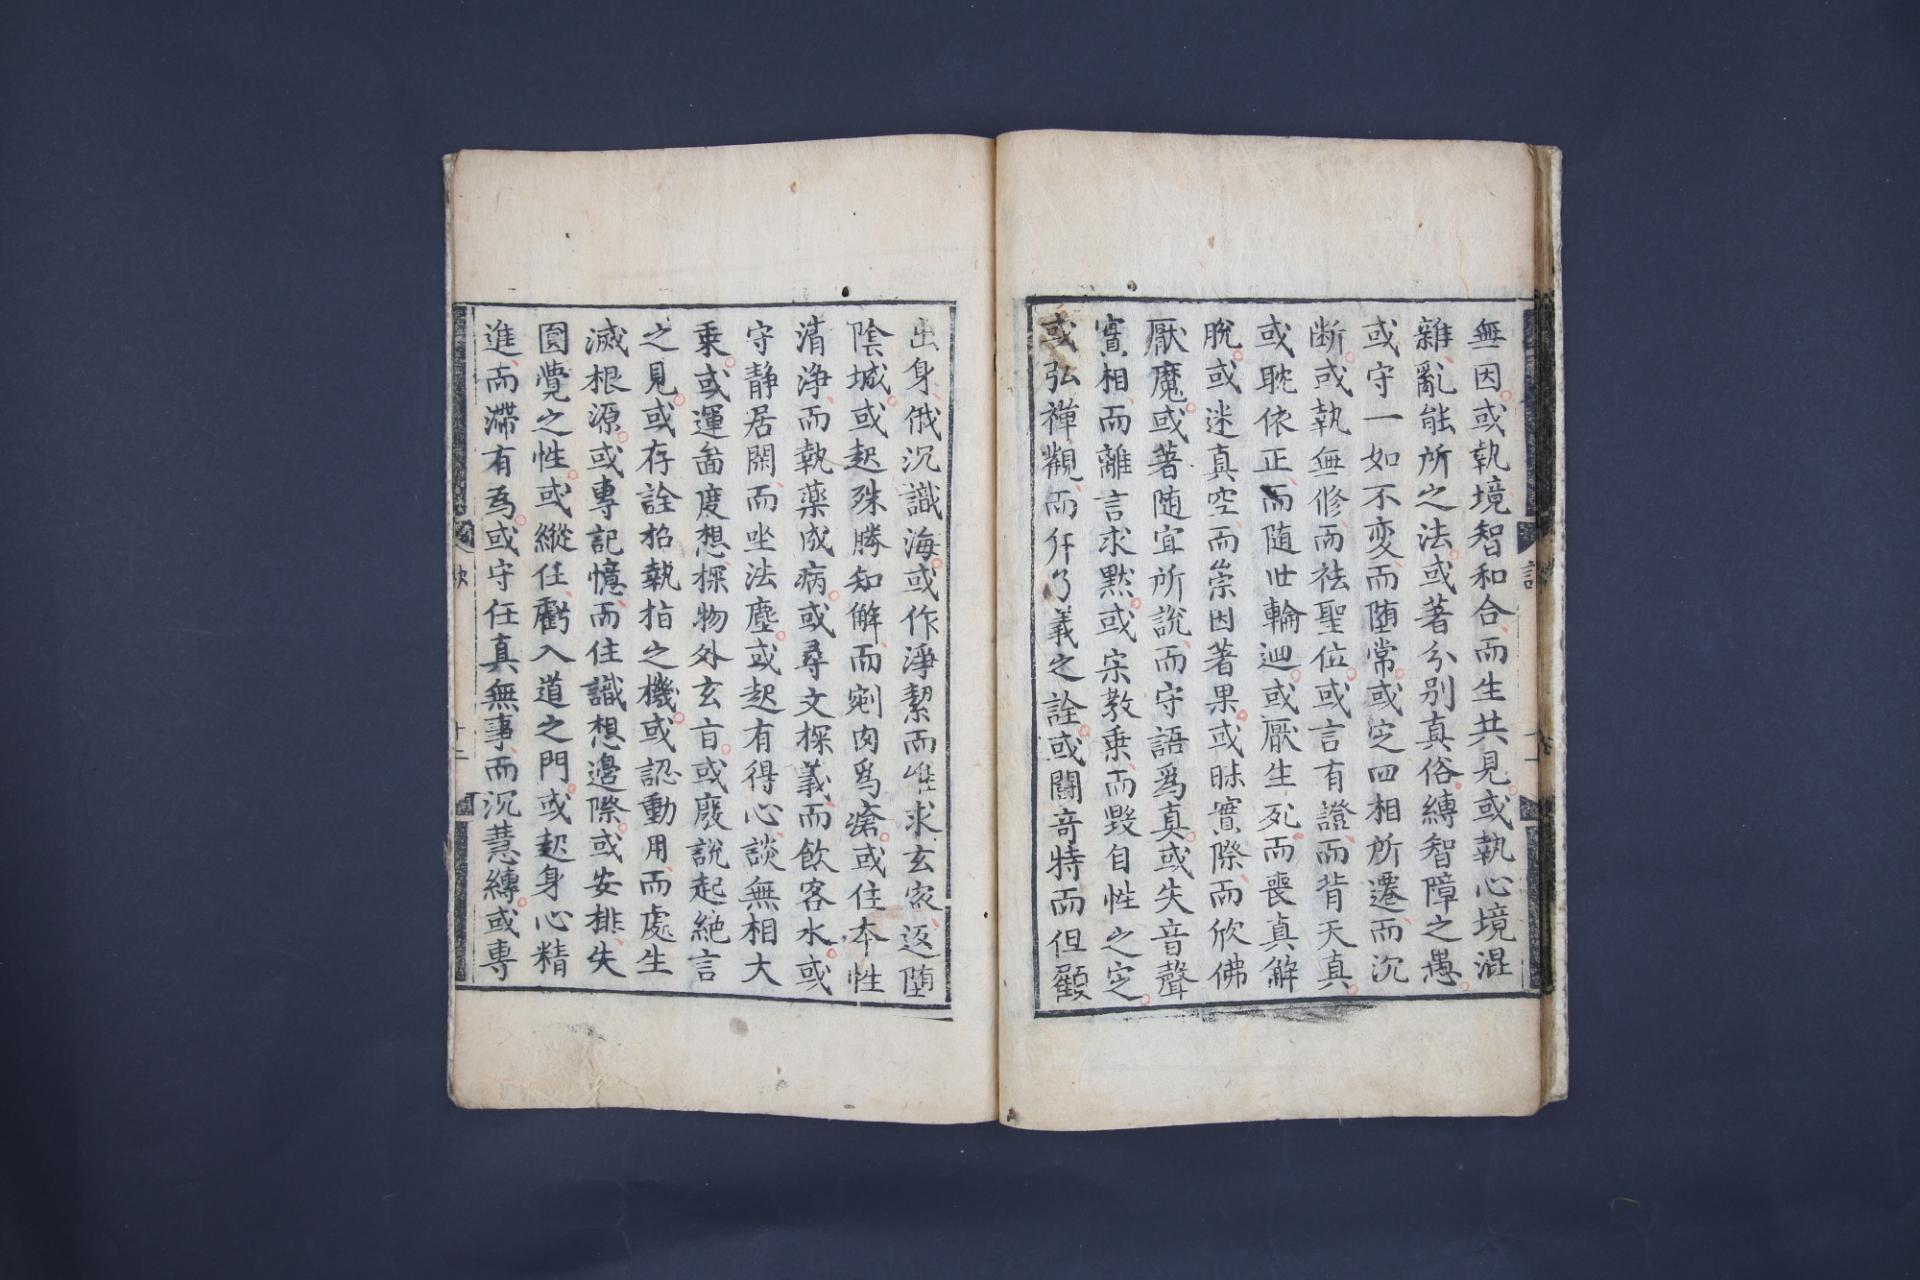 無因或執境智和合而生共見或執心境混
雜亂能所之法或著分别真俗縛智障之愚
或守一如不變而墮常或定四相所遷而沉
断或執無修而祛聖位或言有證而背天真
或耽依正而随世輪迴或厭生死而喪真解
脫或迷真空而崇因著果或昧實際而欣佛
厭魔或著随宜所說而守語爲真或失音聲
實相而離言求默或宗教乗而毀自性之定
或弘禪觀而斥了義之詮或鬪竒特而但顧
出身俄沉識海或作淨潔而唯求玄宻返堕
陰城或起殊勝知解而剜肉爲瘡或住本性
清淨而執藥成病或尋文探義而飲客水或
守静居閑而坐法塵或起有得心談無相大
乗或運啚度想探物外玄旨或廢說起絶言
之見或存詮招執指之機或認動用而處生
滅根源或專記憶而住識想邊際或安排失
圓覺之性或縱任虧入道之門或起身心精
進而滞有為或守任真無事而沉慧縛或専